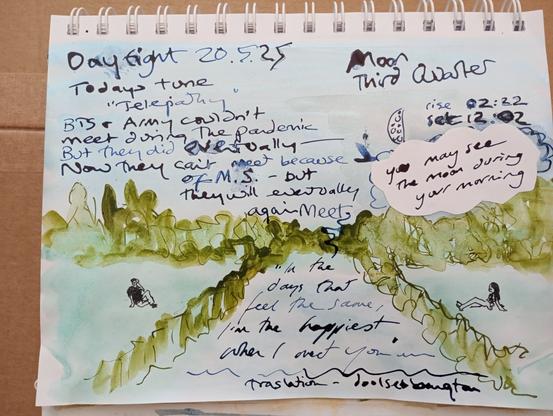 Day Eight 20.5.25
Todays tune
"Telepathy"
BTS & Army couldn't
meet during the pandemic
But they did eventually —
Now they can't meet because
of M.S. - but
they will eventually
again Meet
Moon
Third Quarter
rise 02:22
set 12:02
you may see
the moon during
your morning
"In the
days that
feel the same,
I'm the happiest
when I meet you"
Traslation - doolsetbangtan